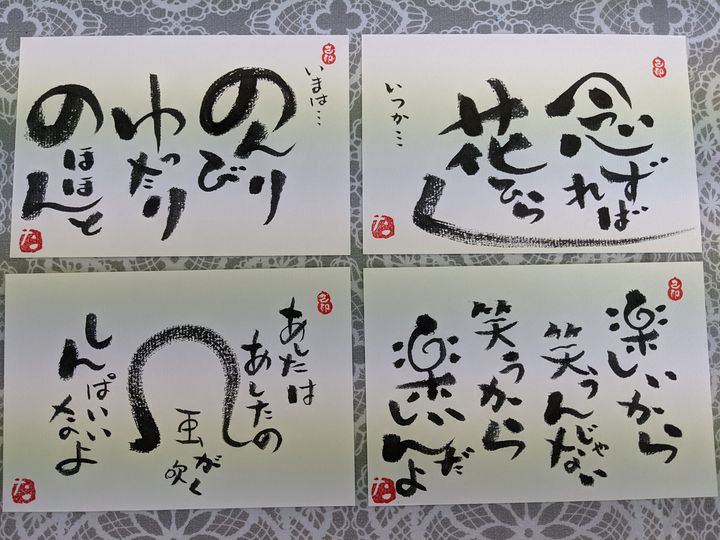 いまは…
のんびり
ゆったり
のほほんと
念ずれば
花ひらく
いつか…
あしたは
あしたの
風が吹く
しんぱい
楽しいから
笑うんじゃない
笑うから
楽しいんだよ